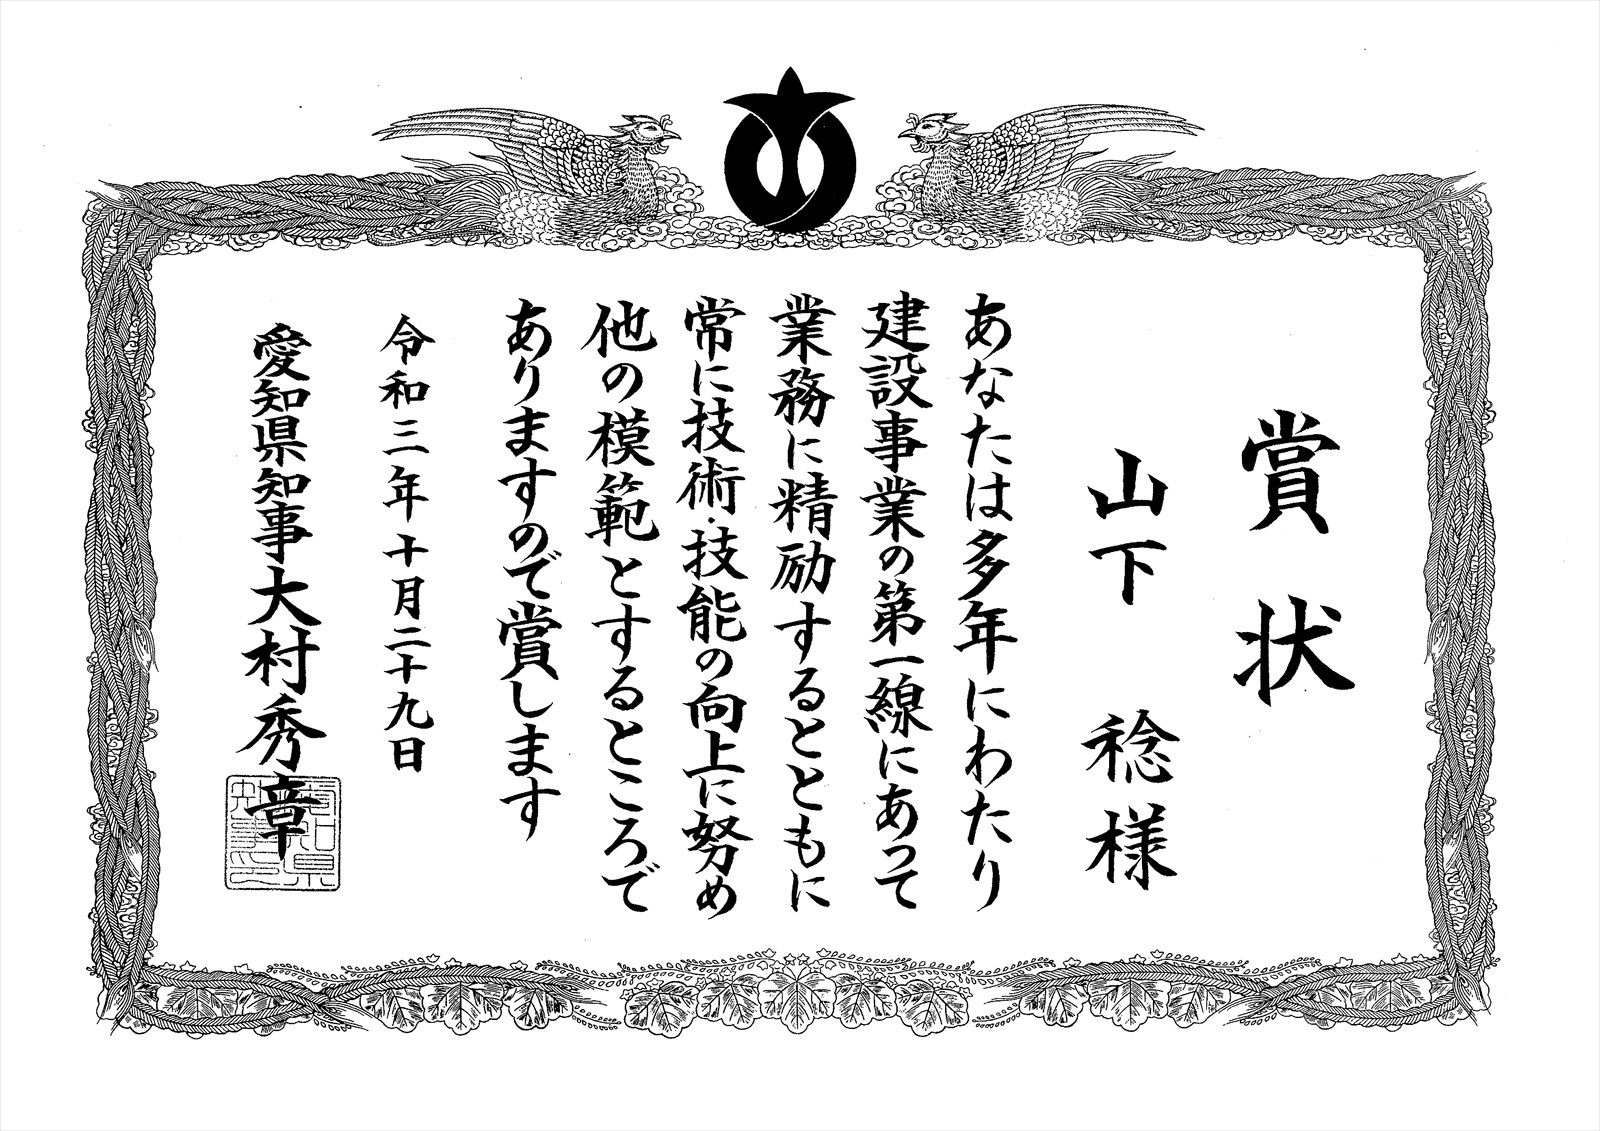 賞状
山下 稔様
あなたは多年にわたり
建設事業の第一線にあって
業務に精励するとともに
常に技術・技能の向上に努め
他の模範とするところで
ありますので賞します
令和三年十月二十九日
愛知県知事大村秀章